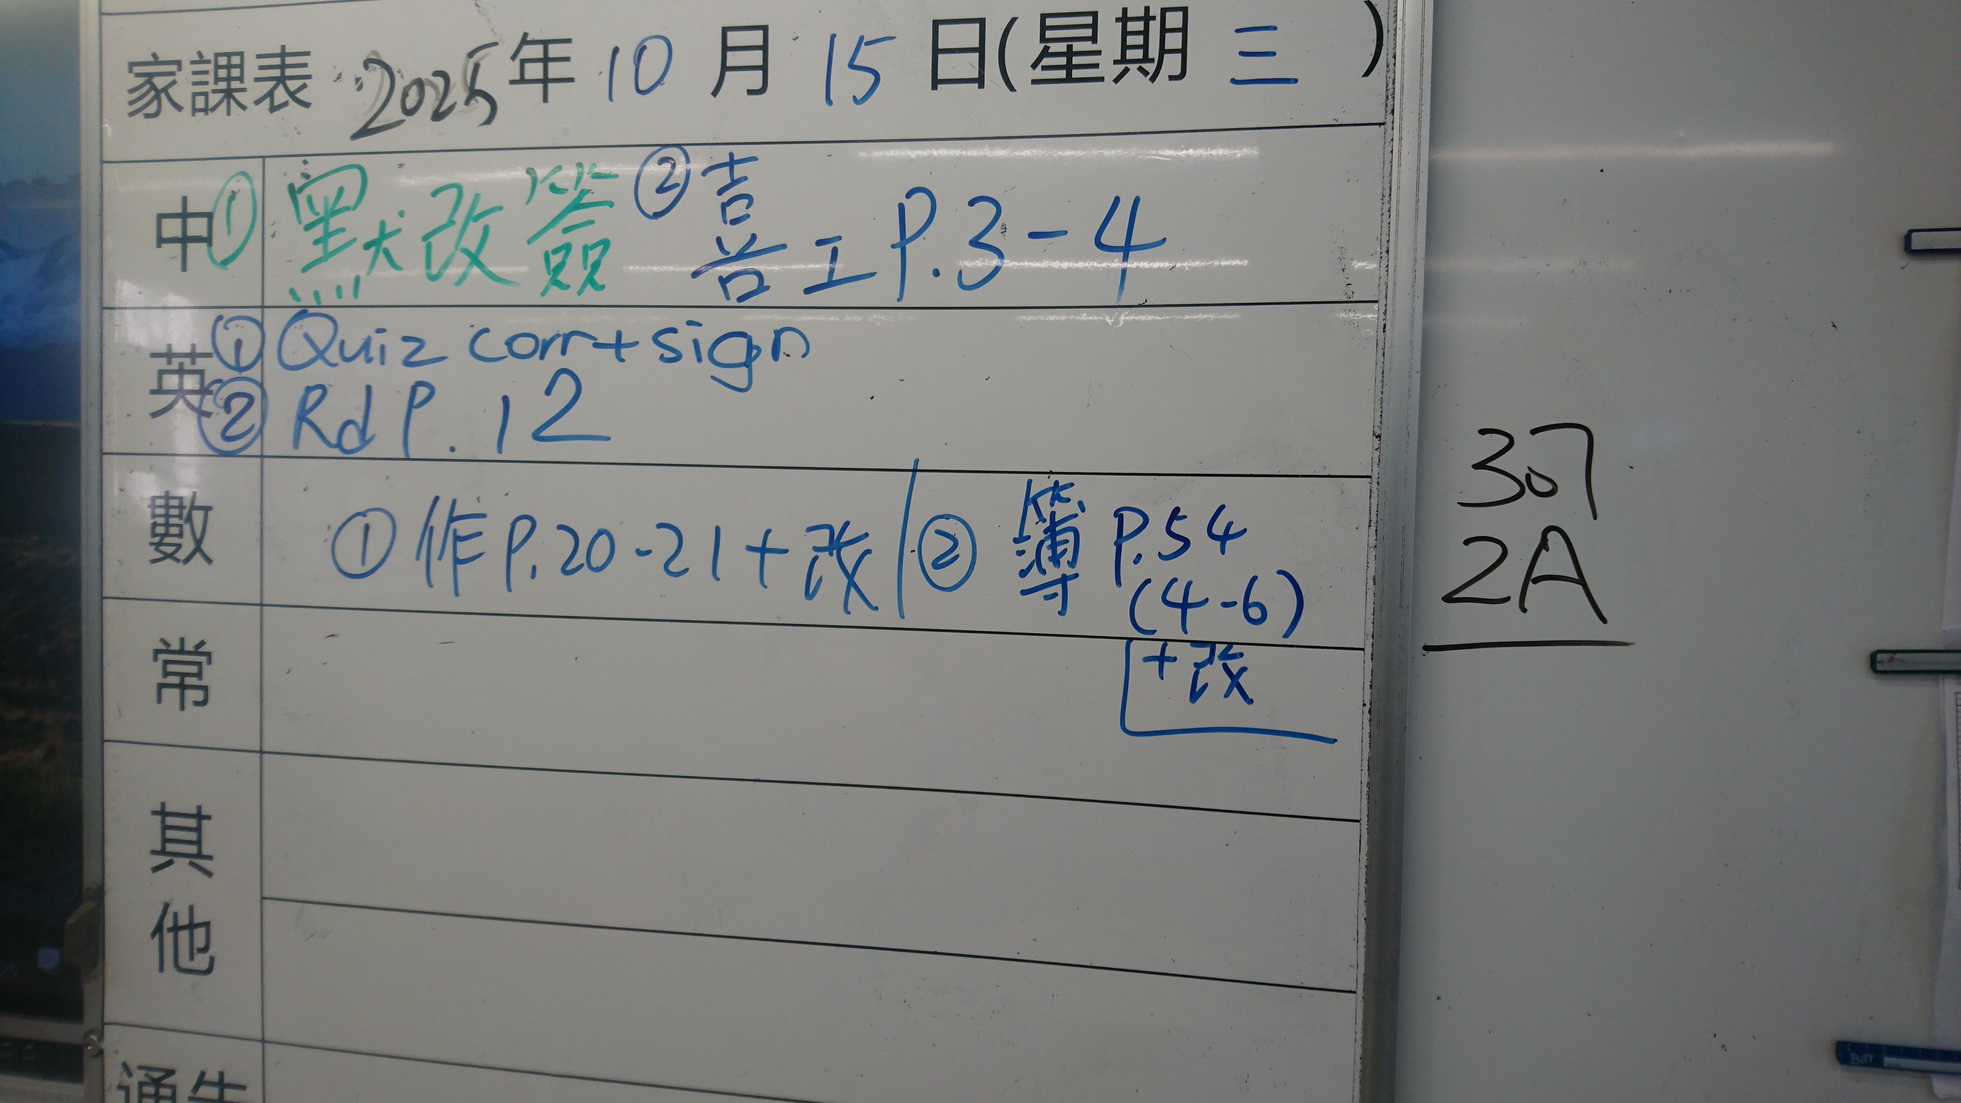 家課表 2025年 10 月 15 日(星期 三 )
中 ① 默改簽 ② 喜工 P.3-4
英 ① Quiz corr+sign
② Rd P.12
數 ① 作 P.20-21+改 ② 簿 P.54
(4-6)
+改
常
其他
通告
307
2A